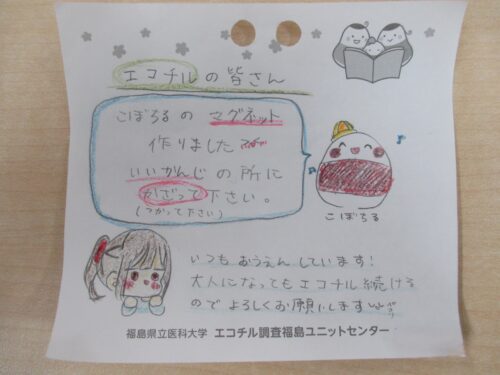 エコチルの皆さん
こぼろるの マグネット
作りました
いいかんじの所に
かざって下さい。
(つかって下さい)
こぼろる
いつもおうえんしています!
大人になってもエコチル続ける
のでよろしくお願いします
福島県立医科大学 エコチル調査福島ユニットセンター